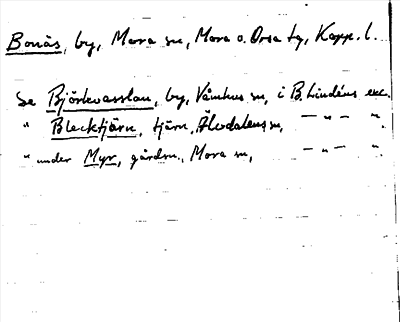 Bonäs, by, Mora sn, Mora o. Orsa tg, Kopp. l.
Se Björkvasslan, by, Våmhus sn, i B. Lindéns exc.
" Blecktjärn, tjärn, Älvdalens sn, — " — ".
" under Myr, gårdsn., Mora sn, — " — ".